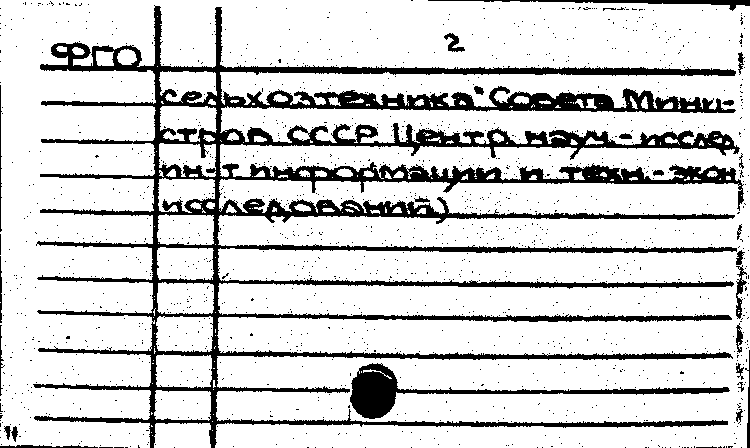 ФГО
2
сельхозтехника" Совета Мини-
стров СССР. Центр. науч.-исслед.
ин-т информации и техн.-экон
исследований)